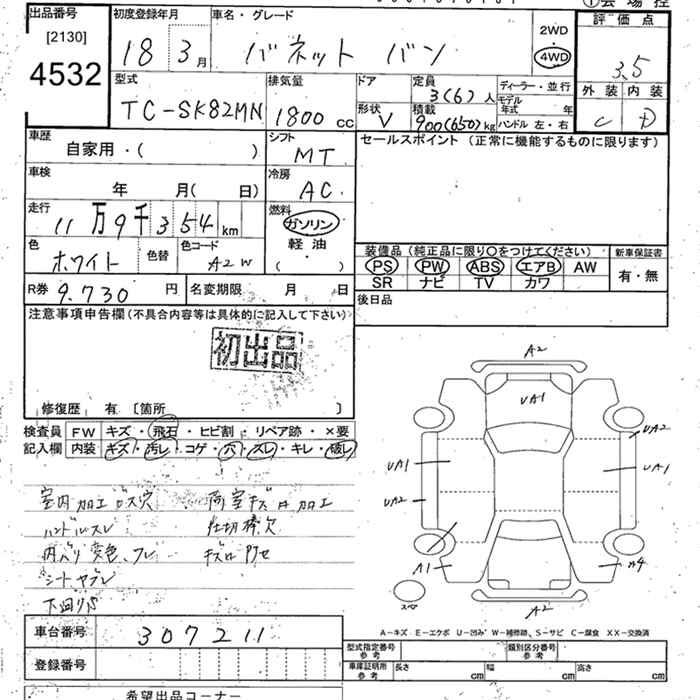 出品番号 初度登録年月 車名・グレード 2WD 4WD ①会場控
[2130]
4532
18 3月 バネット バン
評価点
3.5
外装 内装
C D
型式 排気量 ドア 定員 ディーラー・並行
TC-SK82MN 1800 cc 3(6)人 モデル年式 年
形状 積載 ハンドル 左・右
V 900(650)kg
車歴 シフト セールスポイント(正常に機能するものに限ります)
自家用・( ) MT
車検 冷房
年 月(日) AC
走行 燃料
11万9千354km ガソリン
軽油
( )
色 色替 色コード
ホワイト A2W
装備品(純正品に限り〇をつけてください) 新車保証書
PS PW ABS エアB AW 有・無
SR ナビ TV カワ
R券 9.730 円 名変期限 月 日 後日品
注意事項申告欄(不具合内容等は具体的に記入して下さい)
初出品
修復歴 有 〔箇所 〕
検査員 FW キズ・飛石・ヒビ割・リペア跡・×要
記入欄 内装 キズ・汚レ・コゲ・穴・スレ・キレ・破レ
室内加工ビス穴 荷室キズ凹加工
ハンドルスレ 仕切棒欠
内バリ変色、ワレ
シートヤブレ
下回りS
A2
UA1
UA2
UA1 UA1
UA2
A1
A2
車台番号 307211
登録番号
A-キズ E-エクボ U-凹み W-補修跡、S-サビ C-腐食 XX-交換済
型式指定番号 参考 類別区分番号 参考
車庫証明用 参考 長さ cm 幅 cm 高さ cm
希望出品コーナー